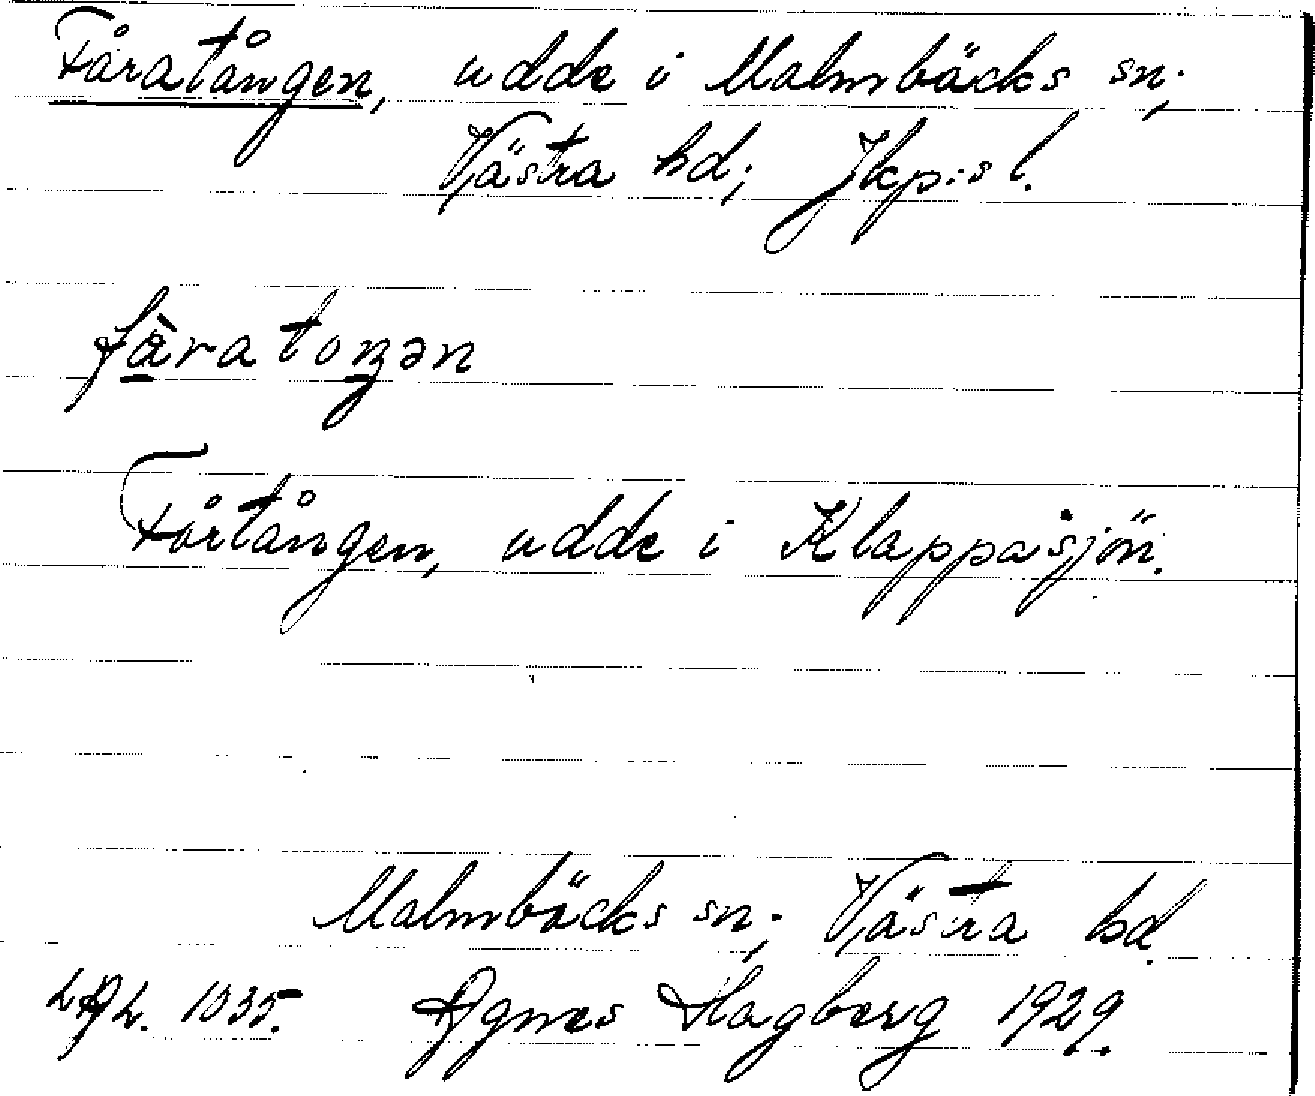 Fåratången, udde i Malmbäcks sn;
Västra hd; Jkp:s l.
fàratoŋən
Fårtången, udde i Klappasjön.
Malmbäcks sn; Västra hd.
1035. Agnes Hagberg 1929.